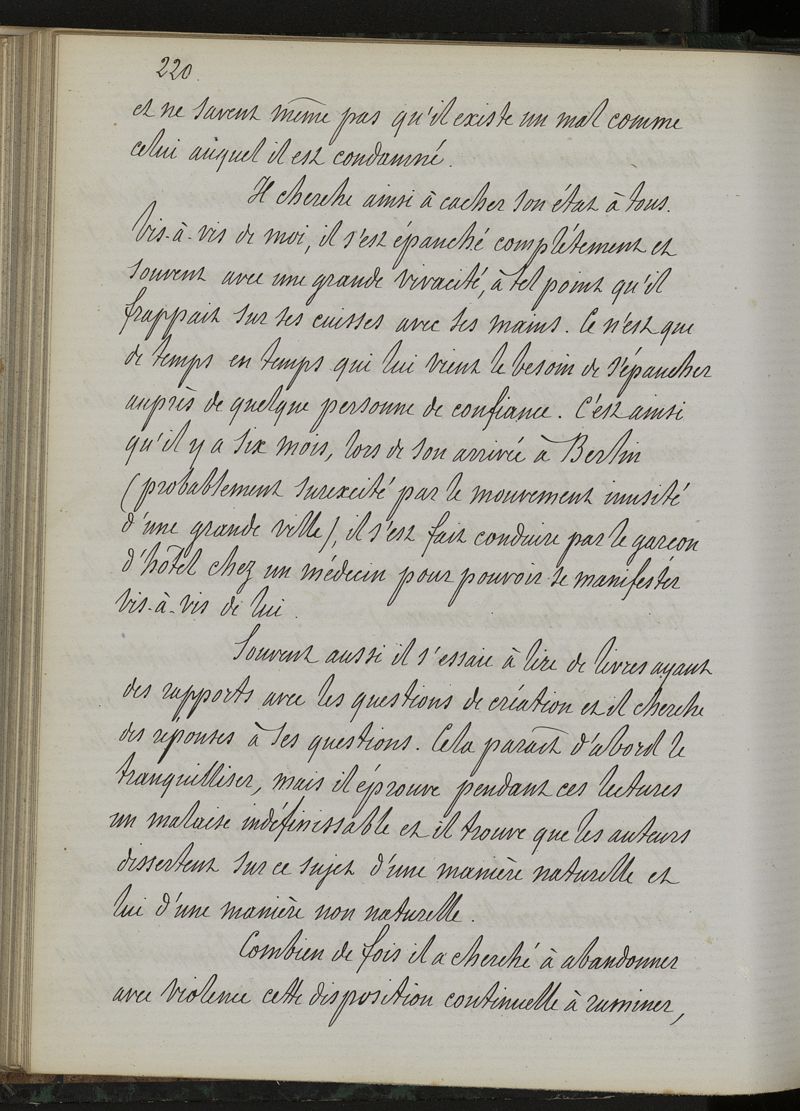 220.
et ne savent même pas qu'il existe un mal comme
celui auquel il est condamné.
Il cherche ainsi à cacher son état à tous.
Vis-à-vis de moi, il s'est épanché complètement et
souvent avec une grande vivacité, à tel point qu'il
frappait sur ses cuisses avec ses mains. Ce n'est que
de temps en temps qui lui vient le besoin de s'épancher
auprès de quelque personne de confiance. C'est ainsi
qu'il y a six mois, lors de son arrivée à Berlin
(probablement surexcité par le mouvement inusité
d'une grande ville), il s'est fait conduire par le garçon
d'hôtel chez un médecin pour pouvoir se manifester
vis-à-vis de lui.
Souvent aussi il s'essaie à lire de livres ayant
des rapports avec les questions de création et il cherche
des réponses à ses questions. Cela paraît d'abord le
tranquilliser, mais il éprouve pendant ces lectures
un malaise indéfinissable et il trouve que les auteurs
dissertent sur ce sujet d'une manière naturelle et
lui d'une manière non naturelle.
Combien de fois il a cherché à abandonner
avec violence cette disposition continuelle à ruminer,